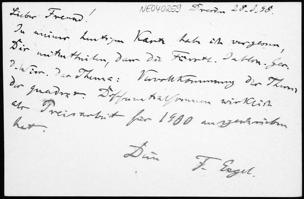 Lieber Freund! NE040259 Dresden 28.3.98.
In meiner heutigen Karte hab ich vergessen,
Dir mitzutheilen, dass die Fürstl. Jablon. Ges.
das Thema: Vervollkommnung der Theorie
der quadrat. Differentialformen wirklich
als Preisarbeit für 1900 ausgeschrieben
hat.
Dein F. Engel.